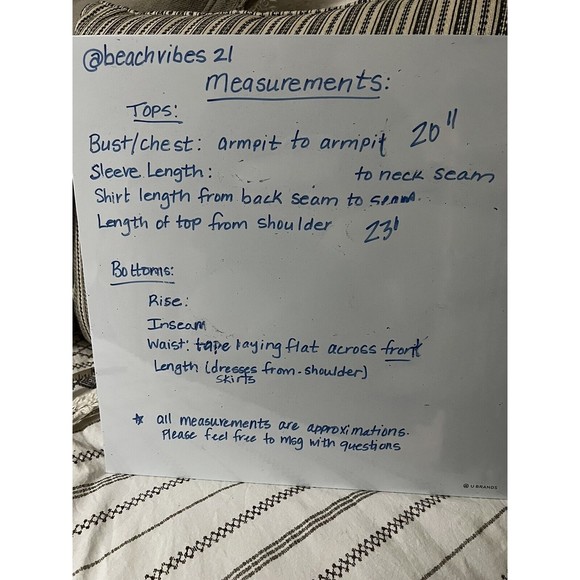 @beachvibes 21
Measurements:
TOPS:
Bust/chest: armpit to armpit 20"
Sleeve Length: to neck seam
Shirt length from back seam to
Length of top from shoulder 23"
Bottoms:
Rise:
Inseam
Waist: tape laying flat across front
Length (dresses from-shoulder)
skirts
* all measurements are approximations.
Please feel free to msg with questions
@ U BRANDS